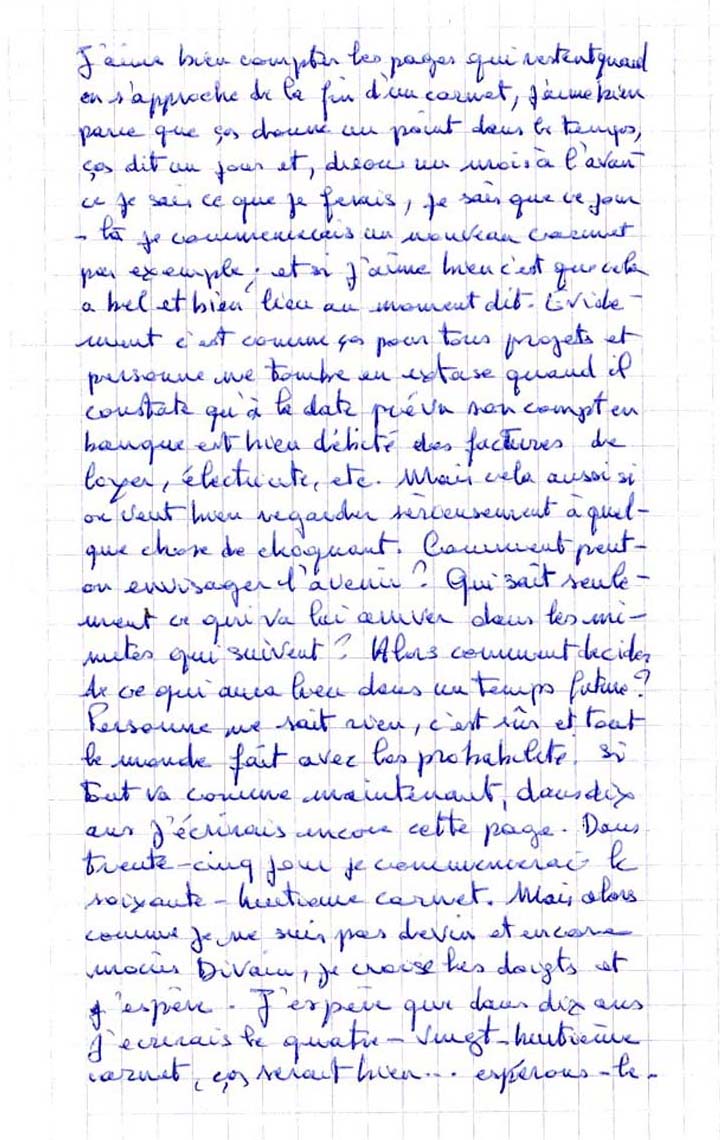 J'aime bien compter les pages qui restent quand
on s'approche de la fin d'un carnet, j'aime bien
parce que ça donne un point dans le temps,
ça dit un jour et, disons un mois à l'avan
ce je sais ce que je ferais, je sais que ce jour
-là je commencerais un nouveau carnet
par exemple; et si j'aime bien c'est que cela
a bel et bien lieu au moment dit. Évide-
ment c'est comme ça pour tous projets et
personne ne tombe en extase quand il
constate qu'à la date prévu son compte en
banque est bien débité des factures de
loyer, électricité, etc. Mais cela aussi si
on veut bien regarder sérieusement à quel-
que chose de choquant. Comment peut-
on envisager l'avenir? Qui sait seule-
ment ce qui va lui arriver dans les mi-
nutes qui suivent? Alors comment décider
de ce qui aura lieu dans un temps future?
Personne ne sait rien, c'est sûr et tout
le monde fait avec les probabilité. Si
tout va comme maintenant, dans dix
ans j'écrirais encore cette page. Dans
trente-cinq jour je commencerai le
soixante-huitième carnet. Mais alors
comme je ne suis pas devin et encore
moins Divain, je croise les doigts et
j'espère. J'espère que dans dix ans
j'écrirais le quatre-vingt-huitième
carnet, ça serait bien... espérons-le.